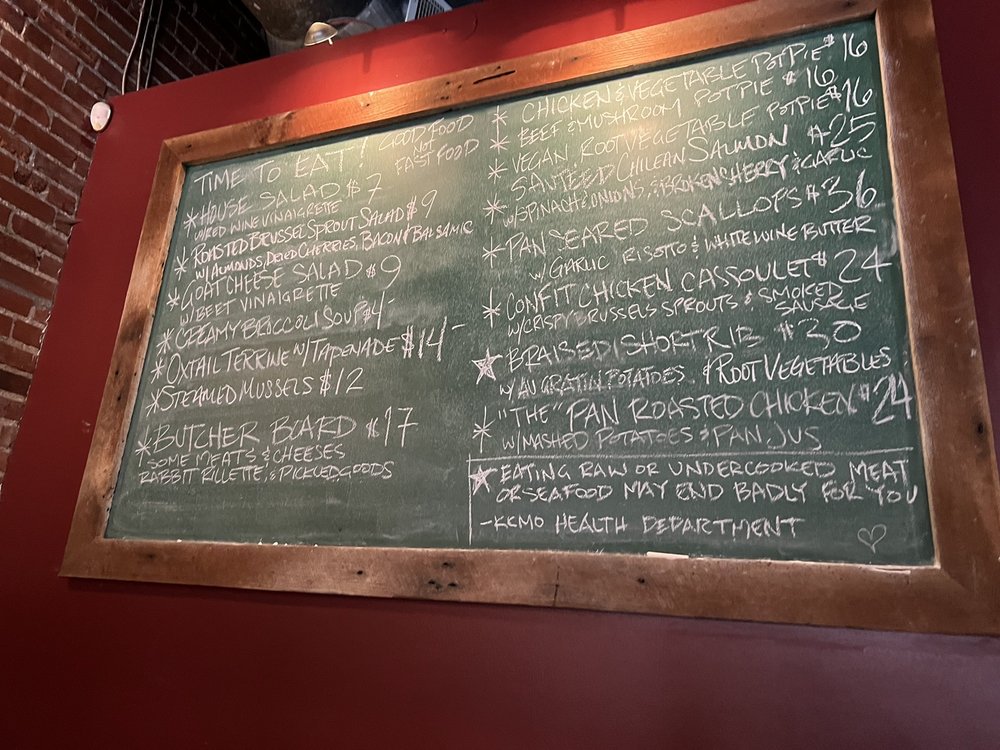 TIME TO EAT! GOOD FOOD
NOT
FAST FOOD
* HOUSE SALAD $7
W/RED WINE VINAIGRETTE
* ROASTED BRUSSEL SPROUT SALAD $9
W/ ALMONDS, DRIED CHERRIES, BACON & BALSAMIC
* GOAT CHEESE SALAD $9
W/ BEET VINAIGRETTE
* CREAMY BROCCOLI SOUP $4-
* OXTAIL TERRINE W/ TAPENADE $14-
* STEAMED MUSSELS $12
* BUTCHER BOARD $17
SOME MEATS & CHEESES
RABBIT RILLETTE, & PICKLED GOODS
* CHICKEN & VEGETABLE POT PIE $16
* BEEF & MUSHROOM POT PIE $16
* VEGAN, ROOT VEGETABLE POTPIE $16
* SAUTEED CHILEAN SALMON $25
W/ SPINACH & ONIONS, & BROKEN CHERRY & GARLIC
* PAN SEARED SCALLOPS $36
W/ GARLIC RISOTTO & WHITE WINE BUTTER
* CONFIT CHICKEN CASSOULET $24
W/CRISPY BRUSSELS SPROUTS & SMOKED SAUSAGE
☆ BRAISED SHORT RIB $30
W/ AU GRATIN POTATOES & ROOT VEGETABLES
* "THE" PAN ROASTED CHICKEN $24
W/MASHED POTATOES & PAN JUS
☆ EATING RAW OR UNDERCOOKED MEAT
OR SEAFOOD MAY END BADLY FOR YOU
-KCMO HEALTH DEPARTMENT ♡